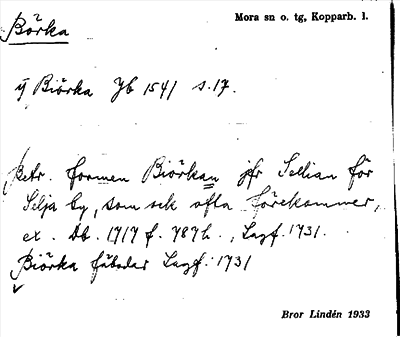 Börka
Mora sn o. tg, Kopparb. l.
ÿ Biörka Jb 1541 s.17.
Betr. formen Biörkan jfr Sellian för
Selja by, som ock ofta förekommer,
ex. Db. 1717 f. 787 h., Lagf. 1731.
Biörka fäbodar Lagf. 1731
Bror Lindén 1933